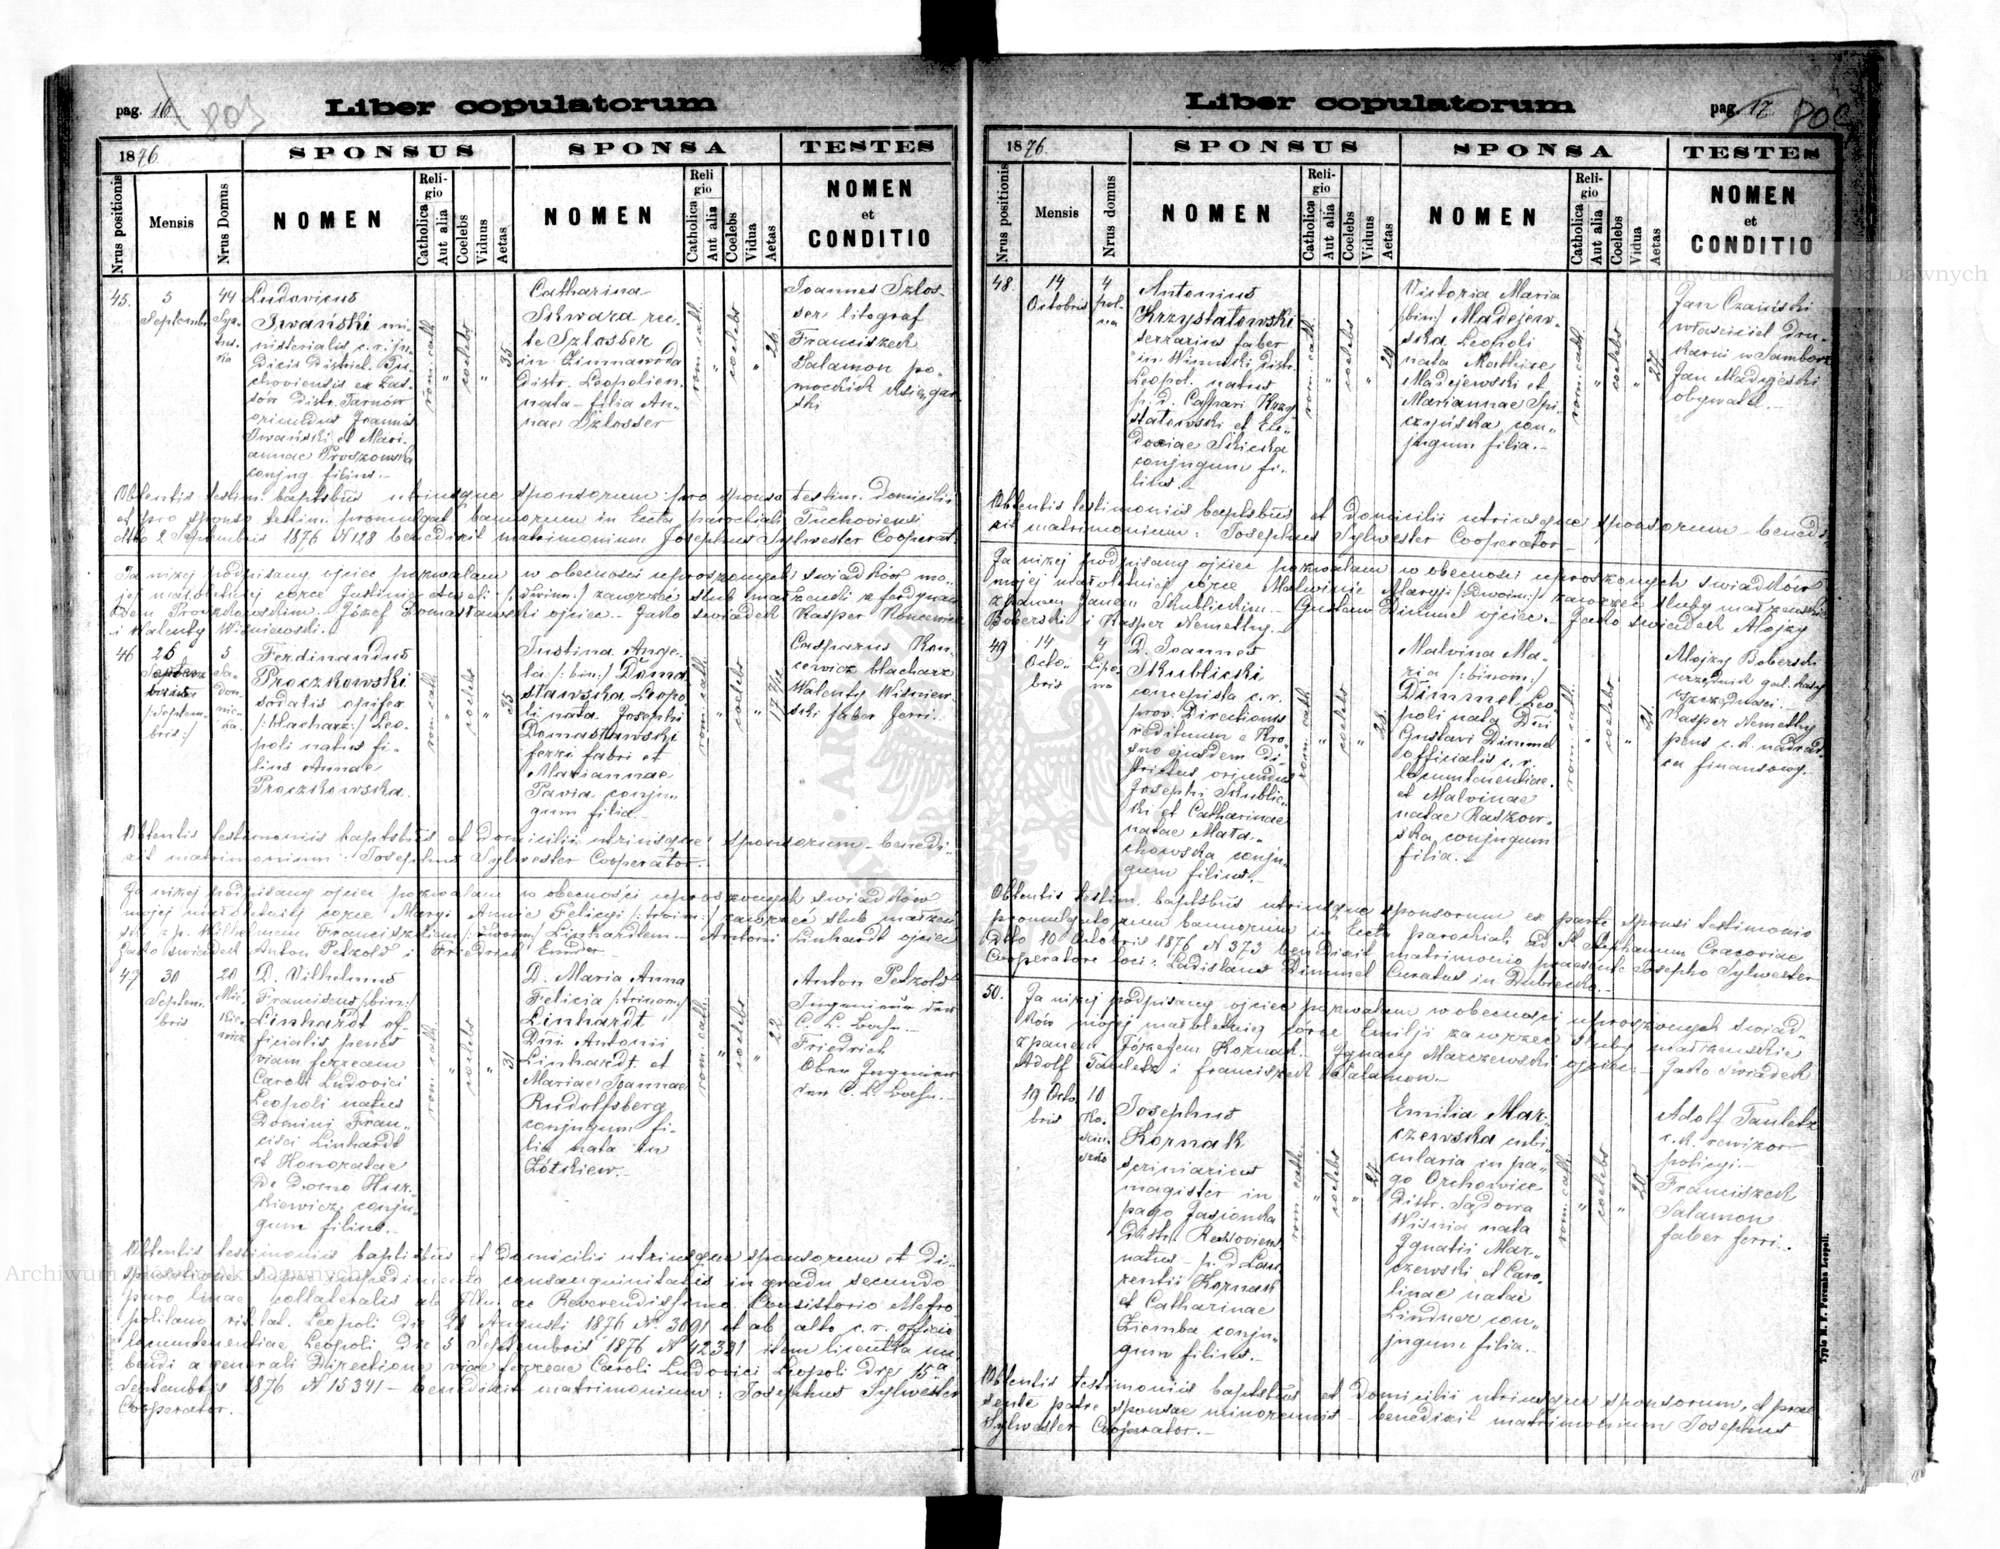 pag. 16
Liber copulatorum
1876.
SPONSUS
SPONSA
TESTES
Nrus positionis
Mensis
Nrus Domus
NOMEN
Religio
Catholica
Aut alia
Coelebs
Viduus
Aetas
NOMEN
Religio
Catholica
Aut alia
Coelebs
Vidua
Aetas
NOMEN
et
CONDITIO
45.
5
Septembr
44
Ludovicus
Iwański mi-
nisterialis c. r. Ju-
dicii District. Tu-
choviensis ex Las-
Distr. Tarnow
oriundus Joannis
Iwański et Mari-
annae
conjug filius.-
rom. cath.
"
coelebs
"
35
Catharina
Skwara rec-
te Szlosser
in Zimnawoda
Distr. Leopolien.
nata - filia An-
nae Szlosser
rom. cath.
"
coelebs
"
26
Joannes Szlos-
ser litograf
Franciszek
Salamon po-
mocnik Księgar-
ski
Obtentis testim. baptsbus utriusque sponsorum pro sponsa testim. domicilii
et pro sponso testim. promulgat. bannorum in Eccla parochiali Tuchoviensi
ddto 2 Septembris 1876 N 128 benedixit matrimonium Josephus Sylwester Cooperat.
Ja niżej podpisany ojciec pozwalam w obecności uproszonych świadków mo-
jej małoletniej córce Justinie Anieli /:dwoim:/ zawrzeć ślub małżeński z Ferdynan-
dem Proczkowskim. Józef Domasławski ojciec. - Jako świadek Kasper Koncewicz
i Walenty Wiśniewski.
46
26
Septem-
bris
/:Septem-
bris:/
5
Sa-
dow-
nic-
ka.
Ferdinandus
Proczkowski
sodalis opifex
/:blacharz:/ Leo-
poli natus fi-
lius Annae
Proczkowska.
rom. cath.
"
coelebs
"
35
Justina Ange-
la /:bin:/ Doma-
sławska Leopo-
li nata Josephi
Domasławski
ferri fabri et
Mariannae
Pawia conju-
gum filia.
rom. cath.
"
coelebs
"
Casparus Kon-
cewicz blacharz
Walenty Wiśniew-
ski faber ferri.-
Obtentis testimoniis baptsbus et domicilii utriusque sponsorum - benedi-
xit matrimonium: Josephus Sylwester Cooperator.
Ja niżej podpisany ojciec pozwalam w obecności uproszonych świadków
mojej małoletniej córce Maryi Annie Felicyi /:troim:/ zawrzeć ślub małżeń-
ski z p. Wilhelmem Franciszkiem /:dwoim:/ Linhardtem - Antoni Linhardt ojciec
Jako świadek Anton Petzold i Friedrich
47
30
Septem-
bris
20
Mic-
kie-
wicz
D. Vilhelmus
Franciscus /:bin:/
Linhardt of-
ficialis penes
viam ferream
Caroli Ludovici
Leopoli natus
Domini Fran-
cisci Linhardt
et Honoratae
de domo Husz-
kiewicz conju-
gum filius.-
rom. cath.
"
coelebs
"
31
D. Maria Anna
Felicia /:trinom:/
Linhardt
Dni Antonii
Linhardt et
Mariae Joannae
Rudolfsberg
conjugum fi-
lia nata in
Żółkiew.-
rom. cath.
"
coelebs
"
22
Anton Petzold
Ingenieur der
C. L. Bahn.-
Friedrich
Ober Ingenieur
der C. L. Bahn.-
Obtentis testimoniis baptistus et domicilii utriusque sponsorum et di-
spensatione super impedimento consanguinitatis in gradu secundo
puro lineae collateralis ab Illu. ac Reverendissimo Consistorio Metro-
politano rit. lat. Leopoli dto Augusti 1876 N. 3091 et ab alto c. r. officio
locumtenentiae Leopoli dto 5 Septembris 1876 N 42331 item licentia nu-
bendi a generali Directione viae ferreae Caroli Ludovici Leopoli dto 15ª
Septembris 1876 N 15341 - benedixit matrimonium: Josephus Sylwester
Cooperator.
Liber copulatorum
pag. 17
1876.
SPONSUS
SPONSA
TESTES
Nrus positionis
Mensis
Nrus domus
NOMEN
Religio
Catholica
Aut alia
Coelebs
Viduus
Aetas
NOMEN
Religio
Catholica
Aut alia
Coelebs
Vidua
Aetas
NOMEN
et
CONDITIO
48.
14
Octobris
4
pol-
na
Antonius
Krzyształowski
serrarius faber
in Winniki distr.
Leopol. natus
p. d. Caspari Krzy-
ształowski et Eu-
doxiae
conjugum fi-
lius.-
rom. cath.
"
coelebs
"
29
Victoria Maria
/:bin:/ Madejew-
ska Leopoli
nata Mathiae
Madejewski et
Mariannae Spi-
czyńska con-
jugum filia.-
rom. cath.
"
coelebs
"
Jan
właściciel dru-
karni w Samborze
Jan Madejeski
obywatel.-
Obtentis testimoniis baptsbus et domicilii utriusque sponsorum - benedi-
xit matrimonium: Josephus Sylwester Cooperator
Ja niżej podpisany ojciec pozwalam w obecności uproszonych świadków
mojej małoletniej córce Malwinie Maryi /:dwoim:/ zawrzeć śluby małżeńskie
z panem Janem Skublickim. - Gustaw Dimmel ojciec.- Jako świadek Alojzy
Boberski i Kasper Nemethy.-
49
14
Octo-
bris
4
Lipo-
wa
D. Joannes
Skublicki
concepista c. r.
prov. Directionis
redituum e Kro-
sno ejusdem di-
strictus oriundus
Josephi Skublic-
ki et Catharinae
natae Mała-
chowska conju-
gum filius.-
rom. cath.
"
coelebs
"
28
Malvina Ma-
ria /:binom:/
Dimmel Leo-
poli nata Dni
Gustavi Dimmel
officialis c. r.
locumtenentiae
et Malvinae
natae Raszow-
ska conjugum
filia.-
rom. cath.
"
coelebs
"
21
Alojzy Boberski
urzędnik gal. kasy
oszczędności.-
Kasper Nemethy
pens c. k. nadrad-
ca finansowy.
Obtentis testim. baptsbus utriusque sponsorum ex parte sponsi testimonio
promulgatorum bannorum in Eccla parochiali ad St. Stephanum Cracoviae
ddto 10 Octobris 1876 N 373 benedixit matrimonio praesente Josepho Sylwester
Cooperatore loci: Ladislaus Dimmel Curatus in Dubiecko.-
50.
Ja niżej podpisany ojciec pozwalam w obecności uproszonych świad-
ków mojej małoletniej córce Emilji zawrzeć śluby małżeńskie
z panem Józefem Kornak. Ignacy Marczewski ojciec.- Jako świadek
Adolf Tauletz i Franciszek Salamon.-
19 Octo
bris
10
Ko-
sciu-
szko
Josephus
Kornak
scriniarius
magister in
pago Jasionka
distr. Resoviens.
natus - p. d. Lau-
rentii Kornak
et Catharinae
Ziemba conju-
gum filius.-
rom. cath.
"
coelebs
"
27
Emilia Mar-
czewska cubi-
cularia in pa-
go Orchowice
distr. Sądowa
Wisnia nata
Ignatii Mar-
czewski et Caro-
linae natae
Lindner con-
jugum filia.-
rom. cath.
"
coelebs
"
20
Adolf Tauletz
c. k. rewizor
policyi.-
Franciszek
Salamon
faber ferri.-
Obtentis testimoniis baptsbus et domicilii utriusque sponsorum, et prae-
sente patre sponsae minorennis - benedixit matrimonium Josephus
Sylwester Cooperator.-
Typis M. F. Poremba Leopoli.
Archiwum Główne Akt Dawnych
Archiwum Główne Akt Dawnych